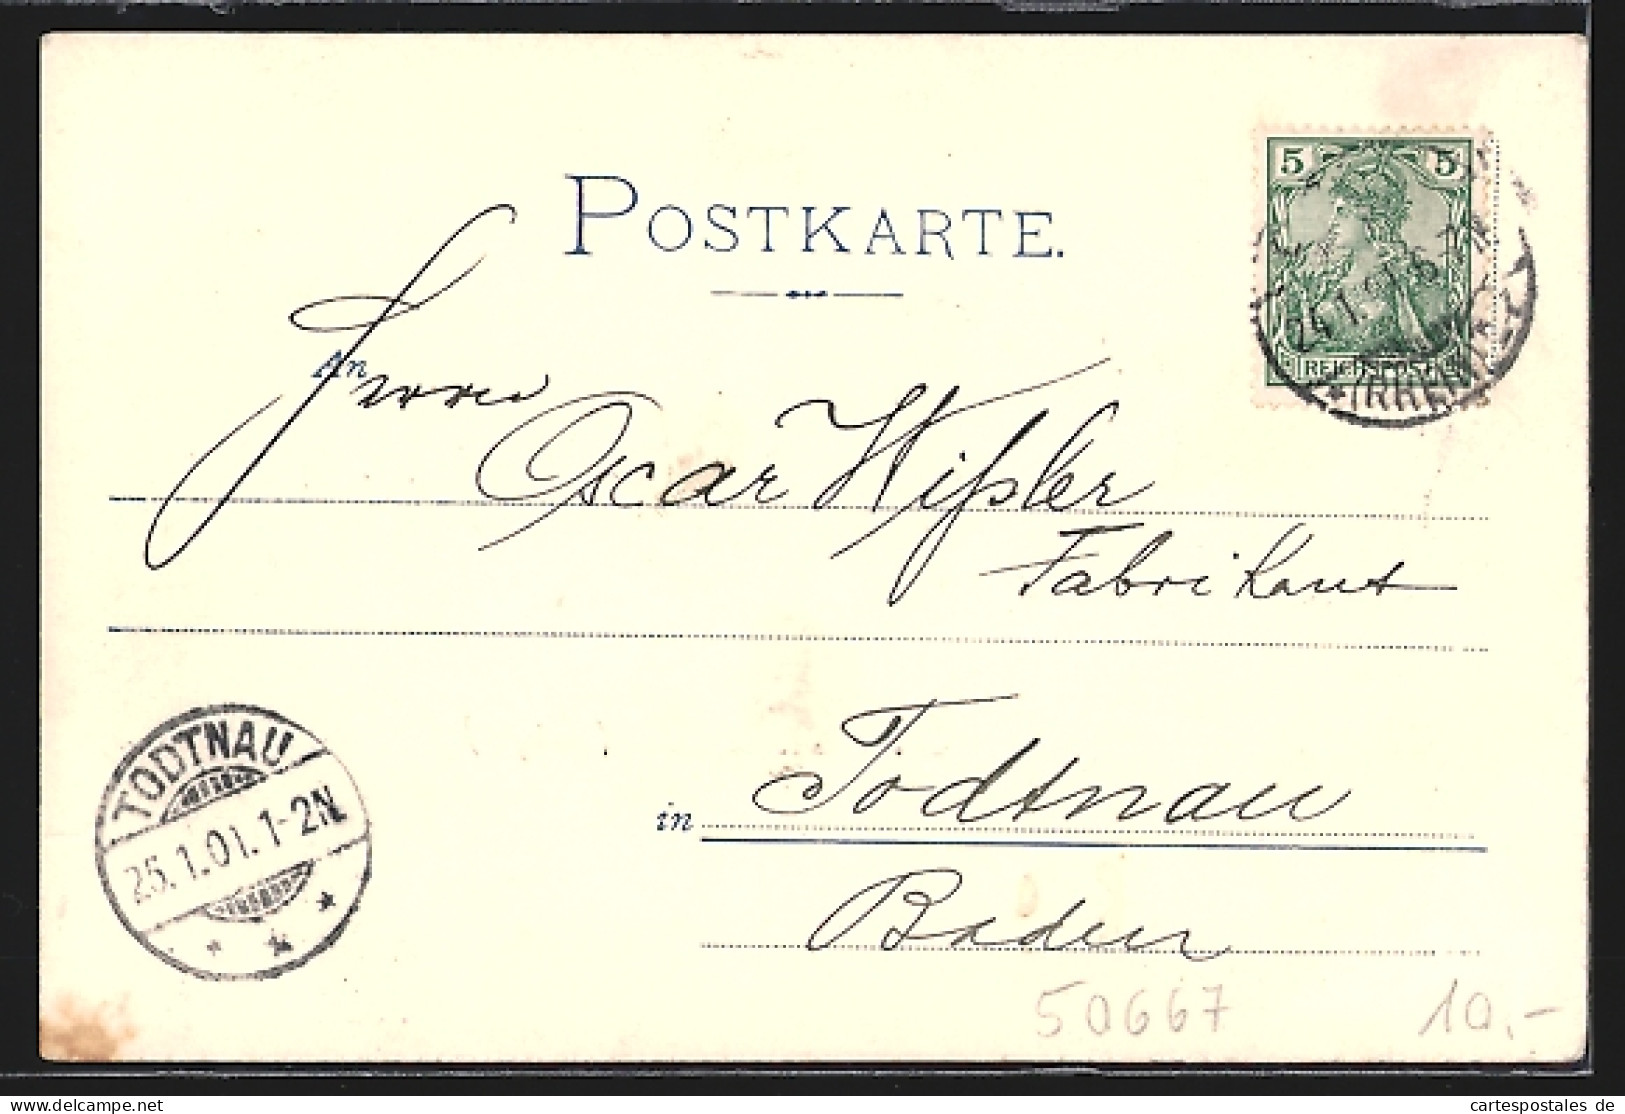 POSTKARTE.
5 5
REICHSPOST
24.1.
(RHEIN)
An
Herrn
Oscar Wißler
Fabrikant
in Todtnau
Baden
TODTNAU
25.1.01.1-2N
50667 10.-
www.delcampe.net
cartespostales de